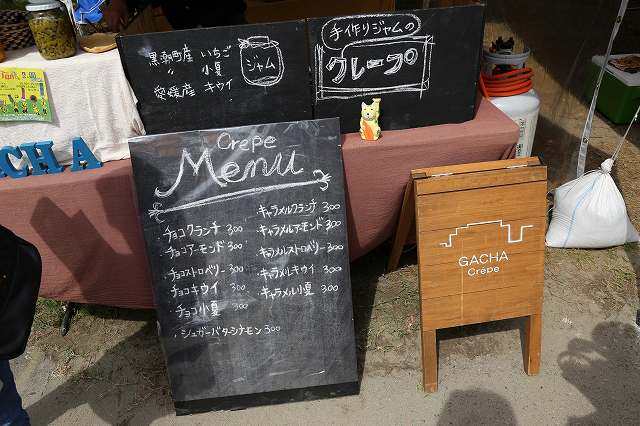 黒潮町産 いちご
〃 小夏
愛媛産 キウイ
ジャム
手作りジャムの
クレープ
ACHA
Crepe
Menu
・チョコクランチ 300
・チョコアーモンド 300
・チョコストロベリー 300
・チョコキウイ 300
・チョコ小夏 300
・シュガーバターシナモン 300
・キャラメルクランチ 300
・キャラメルアーモンド 300
・キャラメルストロベリー 300
・キャラメルキウイ 300
・キャラメル小夏 300
GACHA
Crêpe